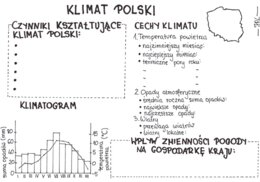 KLIMAT POLSKI
CZYNNIKI KSZTAŁTUJĄCE
KLIMAT POLSKI:
CECHY KLIMATU
1. Temperatura powietrza
najzimniejszy miesiąc:
najcieplejszy miesiąc:
termiczne pory roku:
2. Opady atmosferyczne
średnia roczna suma opadów:
największe opady:
najniższe opady:
3. Wiatry
przeważają wiatry:
wiatry lokalne:
KLIMATOGRAM
suma opadów (mm)
temperatura powietrza
WPŁYW ZMIENNOŚCI POGODY
NA GOSPODARKĘ KRAJU: